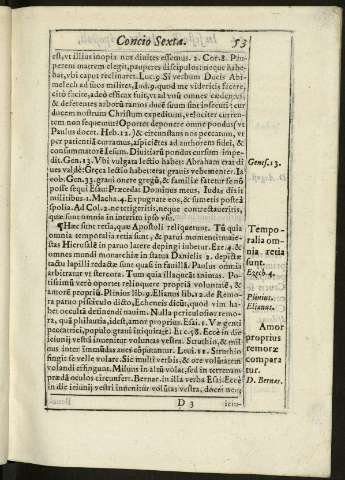 Concio Sexta.
53
est, vt illius inopia nos diuites essemus. 2. Cor. 8. Pau-
perem matrem elegit, pauperes discipulos: neque habe-
bat, vbi caput reclinaret. Luc. 9. Si verbum Ducis Abi-
melech ad suos milites, Iud. 9. quod me videritis facere,
citò facite, adeò efficax fuit, vt ad vnũ omnes
& deferentes arborũ ramos ducẽ suum sint insecuti: cur
ducem nostrum Christum expeditum, velociter curren-
tem non sequemur? Oportet deponere omne pondus, vt
Paulus docet. Heb. 12. & circunstans nos peccatum, vt
per patientiã curramus, aspiciẽtes ad authorem fidei, &
consummatorẽ Iesum. Diuitiarũ pondus cursum impe-
dit. Gen. 13. Vbi vulgata lectio habet: Abraham erat di-
ues valdè: Gręca lectio habet: erat grauis vehementer. Ia
cob. Gen. 33. graui onere gregũ, & familiæ fatetur se nõ
posse sequi Esau: Præcedat Dominus meus, Iudas dixit
militibus 1. Macha. 4. Expugnate eos, & sumetis posteà
spolia. Ad Col. 2. ne tetigeritis, neque contrectaueritis,
quæ sunt omnia in interitu ipso vsu.
¶Hæc sunt retia, quæ Apostoli reliquerunt. Tũ quia
omnia temporalia retia sunt, & parui momenti: maie-
stas Hierusalẽ in paruo latere depingi iubetur. Eze. 4. &
omnes mundi monarchiæ in statua Danielis 2. depictæ
tactu lapilli redactæ sunt quasi in fauillã. Paulus omnia
arbitratur vt stercora. Tum quia illaqueãt animas. Po-
tissimũ verò oportet relinquere propriã voluntatẽ, &
amorẽ propriũ. Plinius lib. 9. Elianus lib. 12. de Remo-
ra paruo pisciculo dicto, Echeneis dicũt, quod vim ha-
bet occulta definendi nauim. Nulla periculosior remo-
ra, quã philautia, idest, amor proprius. Esai. 1. Væ genti
peccatrici, populo graui iniquitate. Et c. 58. Eccè in die
ieiunij vestri inuenitur voluntas vestra. Struthio, & mil
uus inter immũdas aues cõputantur. Leui. 11. Struthio
fingit se velle volare. Sic multi verbis, & ore voluntatem
volandi effingunt. Miluus in altũ volat, sed in terrenam
prædã oculos circunfert. Bernar. in illa verba Esai: Eccè
in die ieiunij vestri inuenitur volũtas vestra, docet nec
D 3
ieiu-
Genes. 13.
Tempo-
ralia om-
nia retia
sunt.
Ezech 4.
Plinius.
Elianus.
Amor
proprius
remoræ
compara
tur.
D. Bernar.